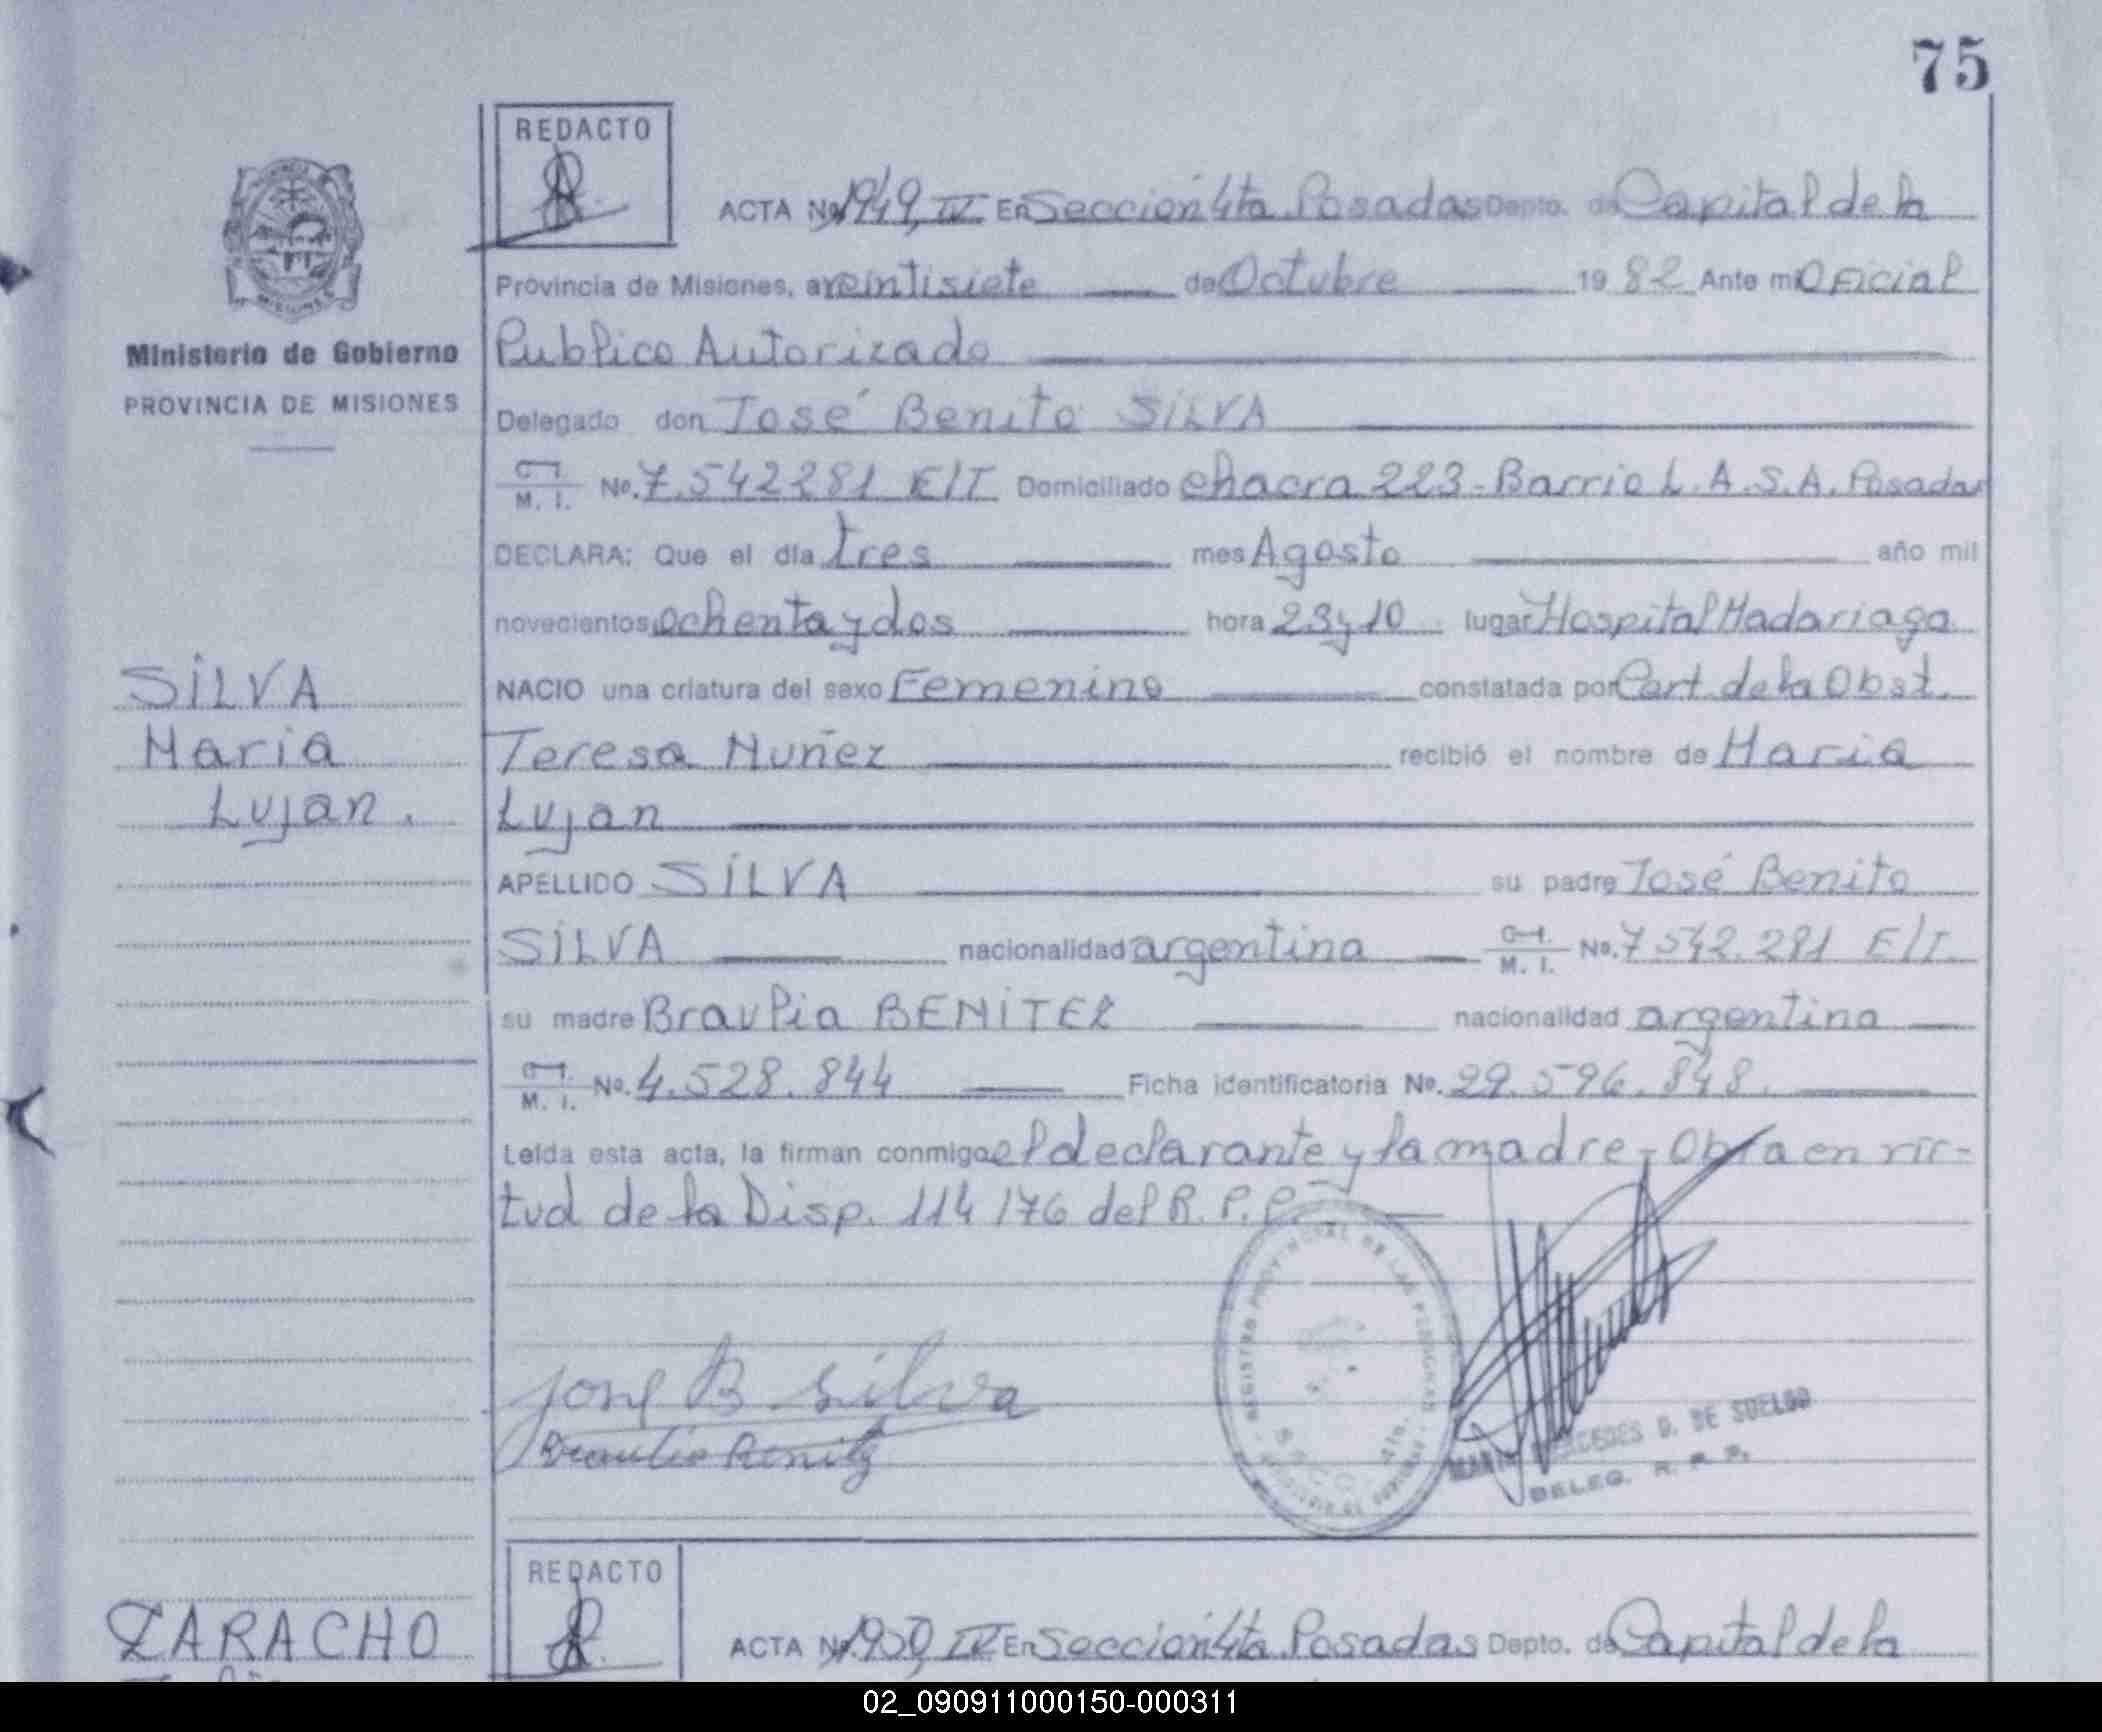 75
REDACTO
ACTA No. 1949, IV En Sección 4ta Posadas Depto. de Capital de la
Provincia de Misiones, a veintisiete de Octubre 1982 Ante mi Oficial
Ministerio de Gobierno
Publico Autorizado
PROVINCIA DE MISIONES
Delegado don José Benito SILVA
M. I. No. 7.542281 E/T Domiciliado chacra 223 - Barrio L.A.S.A. Posadas
DECLARA: Que el día tres mes Agosto año mil
novecientos ochenta y dos hora 23 y 10 lugar Hospital Madariaga
SILVA
NACIO una criatura del sexo Femenino constatada por Cert. de la Obst.
Maria
Teresa Nuñez recibió el nombre de Maria
Lujan.
Lujan
APELLIDO SILVA su padre José Benito
SILVA nacionalidad argentina M. I. No. 7542.281 E/T.
su madre Braulia BENITEZ nacionalidad argentina
M. I. No. 4.528.844 Ficha identificatoria No. 29.596.848.
Leída esta acta, la firman conmigo el declarante y la madre - Obra en vir-
tud de la Disp. 114/76 del R.P.P.
REGISTRO PROVINCIAL DE LAS PERSONAS
SECC. 4ta.
Jose B Silva
Braulia Benitez
MERCEDES D. DE SUELDO
DELEG. R. P. P.
REDACTO
ZARACHO
ACTA No. 1950, IV En Sección 4ta. Posadas Depto. de Capital de la
02_090911000150-000311